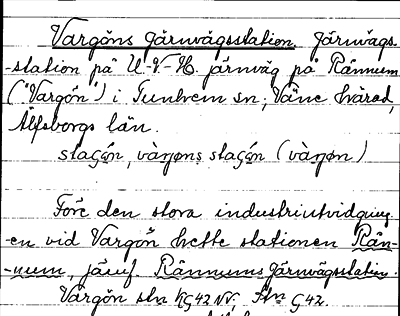 Vargöns järnvägsstation. Järnvägs-
-station på U-V-H. järnväg på Rännum
("Vargön") i Tunhem sn, Väne härad,
Älfsborgs län.
Före den stora industriutvidgning-
-en vid Vargön hette stationen Rän-
-num, jämf. Rännums järnvägsstation.
Vargön stn KG42 NV. Stn G42.